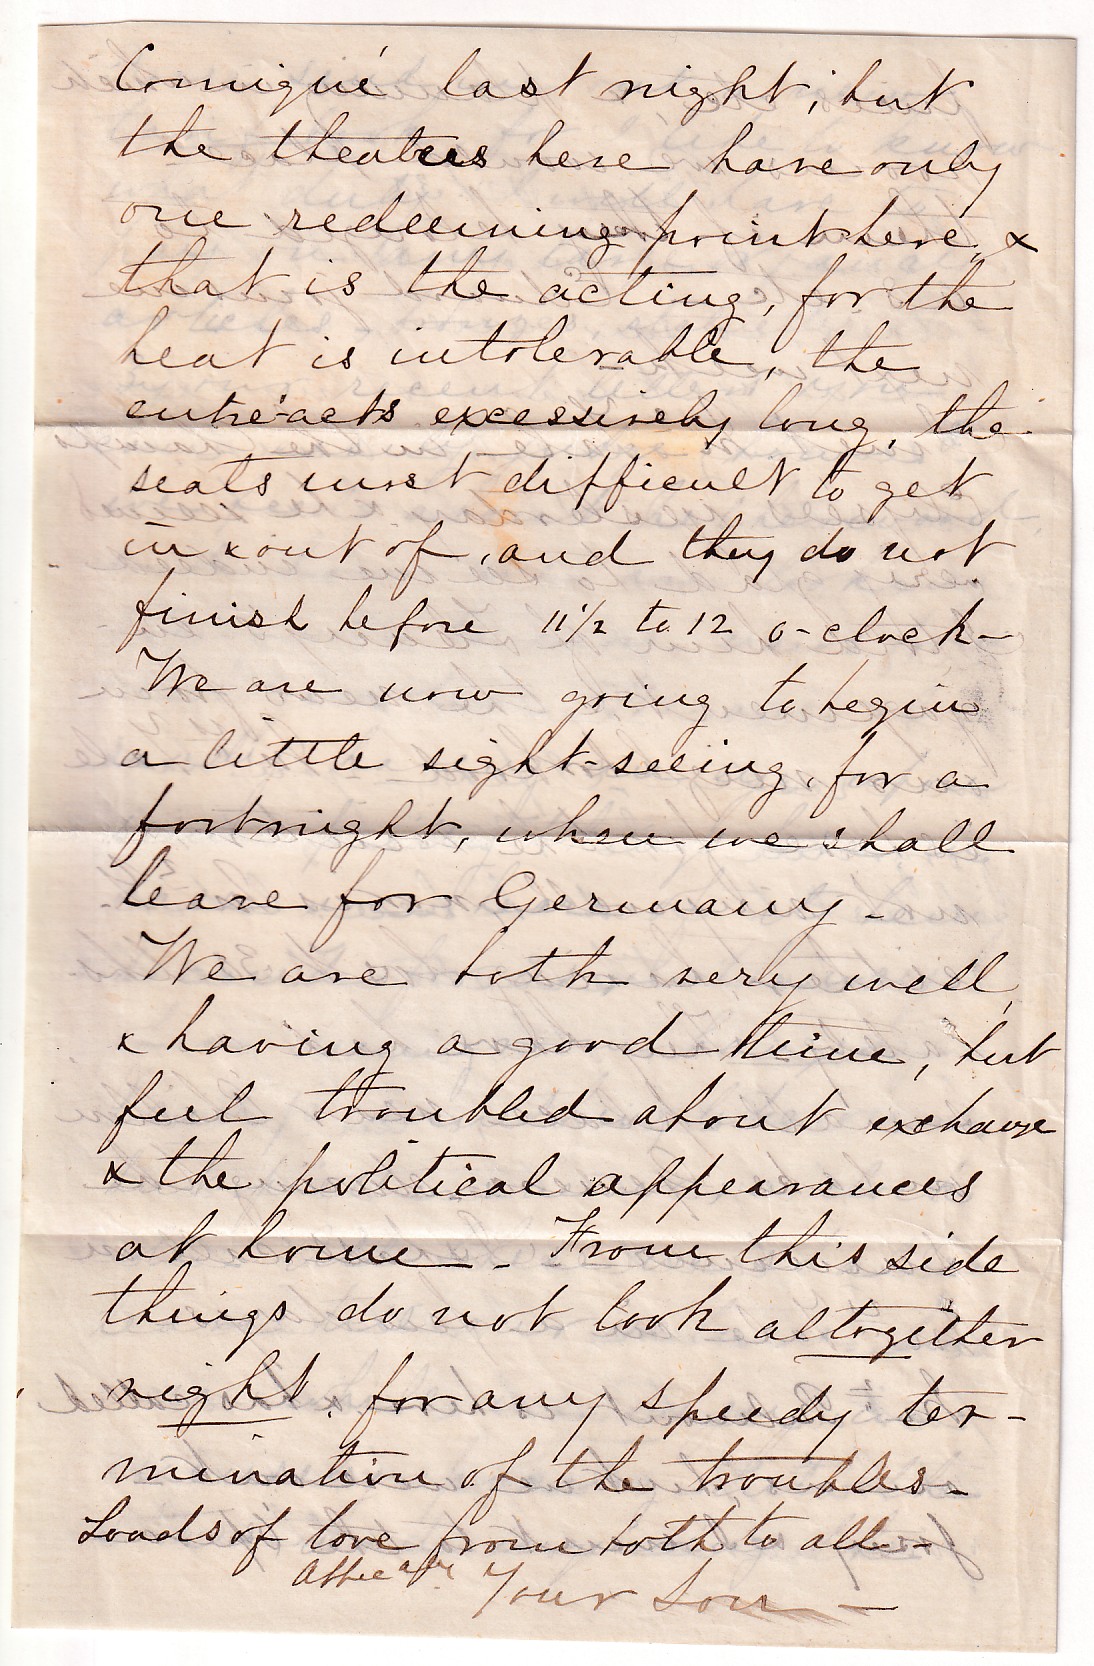 Comiqué last night; but
the theatres here have only
one redeeming point here, &
that is the acting, for the
heat is intolerable, the
entre-acts excessively long, the
seats most difficult to get
in & out of, and they do not
finish before 11 1/2 to 12 o-clock-
We are now going to begin
a little sight-seeing, for a
fortnight, when we shall
leave for Germany -
We are both very well,
& having a good time, but
feel troubled about exchange
& the political appearances
at home - From this side
things do not look altogether
right, for any speedy ter-
mination of the troubles -
Loads of love from both to all -
Your Son -